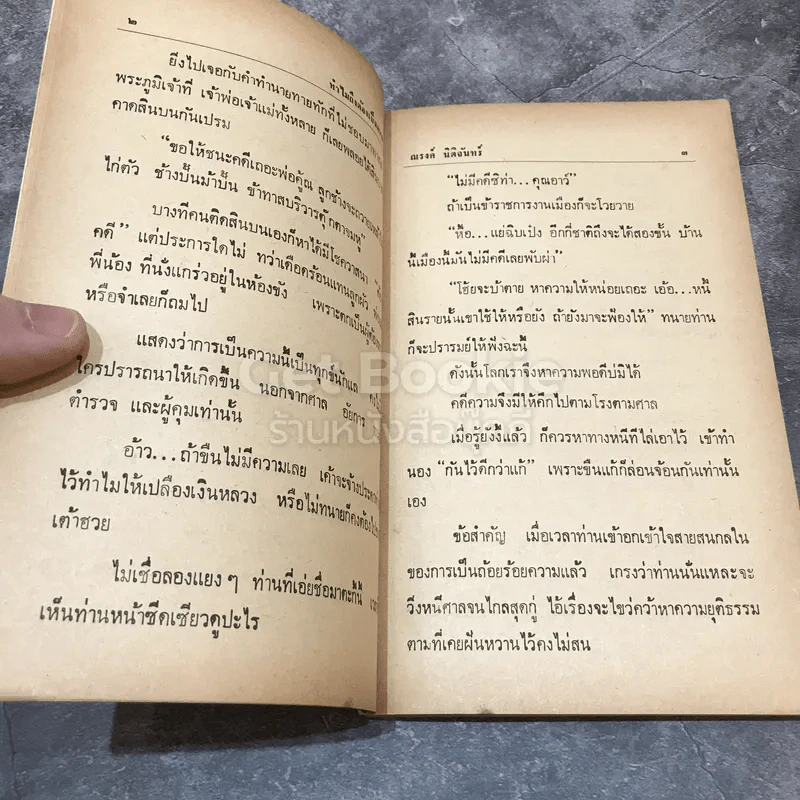 ๒
ยิ่งไปเจอกับคำทำนายทายทักที่ไม่ชอบมา
พระภูมิเจ้าที่ เจ้าพ่อเจ้าแม่ทั้งหลาย ก็เลยพลอยได้สิน
คาดสินบนกันเปรม
"ขอให้ชนะคดีเถอะพ่อคู้ณ ลูกช้างจะถวาย
ไก่ตัว ช้างปั้นม้าปั้น ข้าทาสบริวารตุ๊กตาจมหู"
บางทีคนติดสินบนเองก็หาได้มีโชควาสนา
คดี" แต่ประการใดไม่ ทว่าเดือดร้อนแทนลูกผัว
พี่น้อง ที่นั่งแกร่วอยู่ในห้องขัง เพราะตกเป็นผู้ต้อง
หรือจำเลยก็ถมไป
แสดงว่าการเป็นความนี้เป็นทุกข์นักแล
ใครปรารถนาให้เกิดขึ้น นอกจากศาล อัยการ
ตำรวจ และผู้คุมเท่านั้น
อ้าว...ถ้าขืนไม่มีความเลย เค้าจะจ้างประ
ไว้ทำไมให้เปลืองเงินหลวง หรือไม่ทนายก็คงต้อง
เต้าฮวย
ไม่เชื่อลองแยงๆ ท่านที่เอ่ยชื่อมาตะกี้นี้
เห็นท่านหน้าซีดเซียวดูปะไร
ณรงค์ นิติจันทร์ ๓
"ไม่มีคดีซิท่า... คุณอาว์"
ถ้าเป็นข้าราชการงานเมืองก็จะโวยวาย
"หื้อ...แย่ฉิบเป๋ง อีกกี่ชาติถึงจะได้สองขั้น บ้าน
นี้เมืองนี้มันไม่มีคดีเลยพับผ่า"
"โอ้ยจะบ้าตาย หาความให้หน่อยเถอะ เอ้อ...หนี้
สินรายนั้นเขาใช้ให้หรือยัง ถ้ายังมาจะฟ้องให้" ทนายท่าน
ก็จะปรารมย์ให้ฟังฉะนี้
ดังนั้นโลกเราจึงหาความพอดีบ่มิได้
คดีความจึงมีให้คึกไปตามโรงตามศาล
เมื่อรู้ยังงี้แล้ว ก็ควรหาทางหนีทีไล่เอาไว้ เข้าทำ
นอง "กันไว้ดีกว่าแก้" เพราะขืนแก้ก็ล่อนจ้อนกันเท่านั้น
เอง
ข้อสำคัญ เมื่อเวลาท่านเข้าอกเข้าใจสายสนกลใน
ของการเป็นถ้อยร้อยความแล้ว เกรงว่าท่านนั่นแหละจะ
วิ่งหนีศาลจนไกลสุดกู่ ไอ้เรื่องจะไขว่คว้าหาความยุติธรรม
ตามที่เคยฝันหวานไว้คงไม่สน
Get Bookie
ร้านหนังสือ